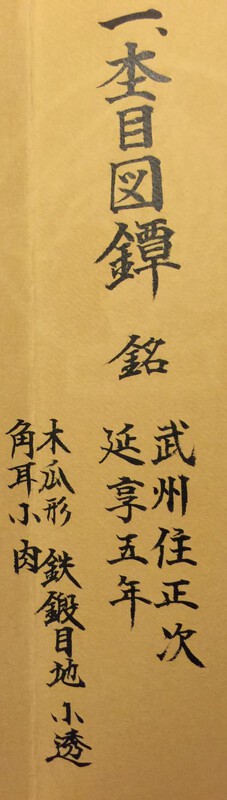 一、杢目図鐔 銘
武州住正次
延享五年
木瓜形 鉄鍛目地 小透
角耳小肉